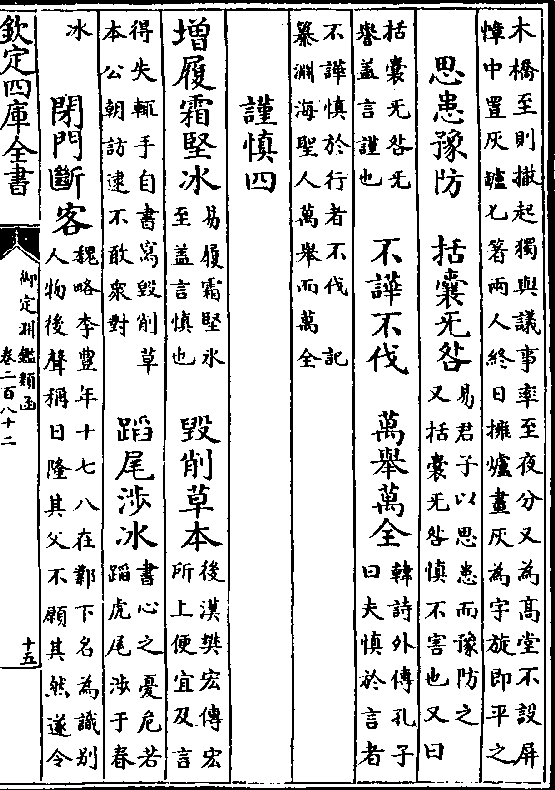 木橋至則撤起獨與議事率至夜分又為髙堂不設屏
幛中置灰罏匕箸兩人終日擁爐畫灰為字旋即平之
思患豫防　括囊无咎
易君子以思患而豫防之
又括囊无咎慎不害也又曰
括囊无咎无
譽葢言謹也
不譁不伐　萬舉萬全
韓詩外傳孔子
曰夫慎於言者
不譁慎於行者不伐　記
纂淵海聖人萬舉而萬全
謹慎四
增履霜堅氷
易履霜堅氷
至葢言慎也
毀削草本
後漢樊宏傳宏
所上便宜及言
得失輙手自書寫毀削草
本公朝訪逮不敢衆對
蹈尾涉冰
書心之憂危若
蹈虎尾涉于春
冰
閉門斷客
魏略李豐年十七八在鄴下名為識别
人物後聲稱日隆其父不願其然遂令
欽定四庫全書
御定淵鑑類函
卷二百八十二
十五